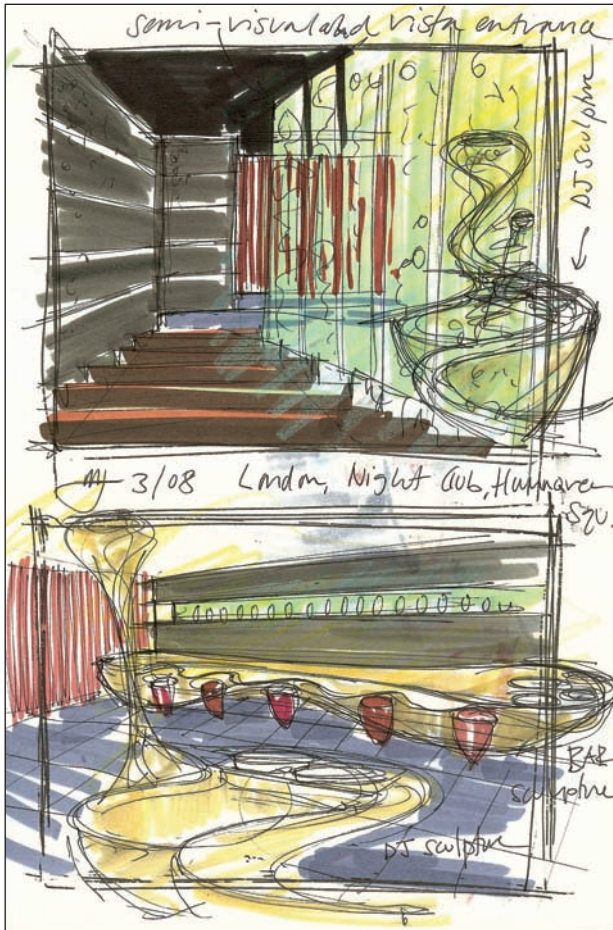 semi-visualated vista entrance
DJ sculpture
3/08 London, Night Club,
BAR
sculpture
DJ sculpture